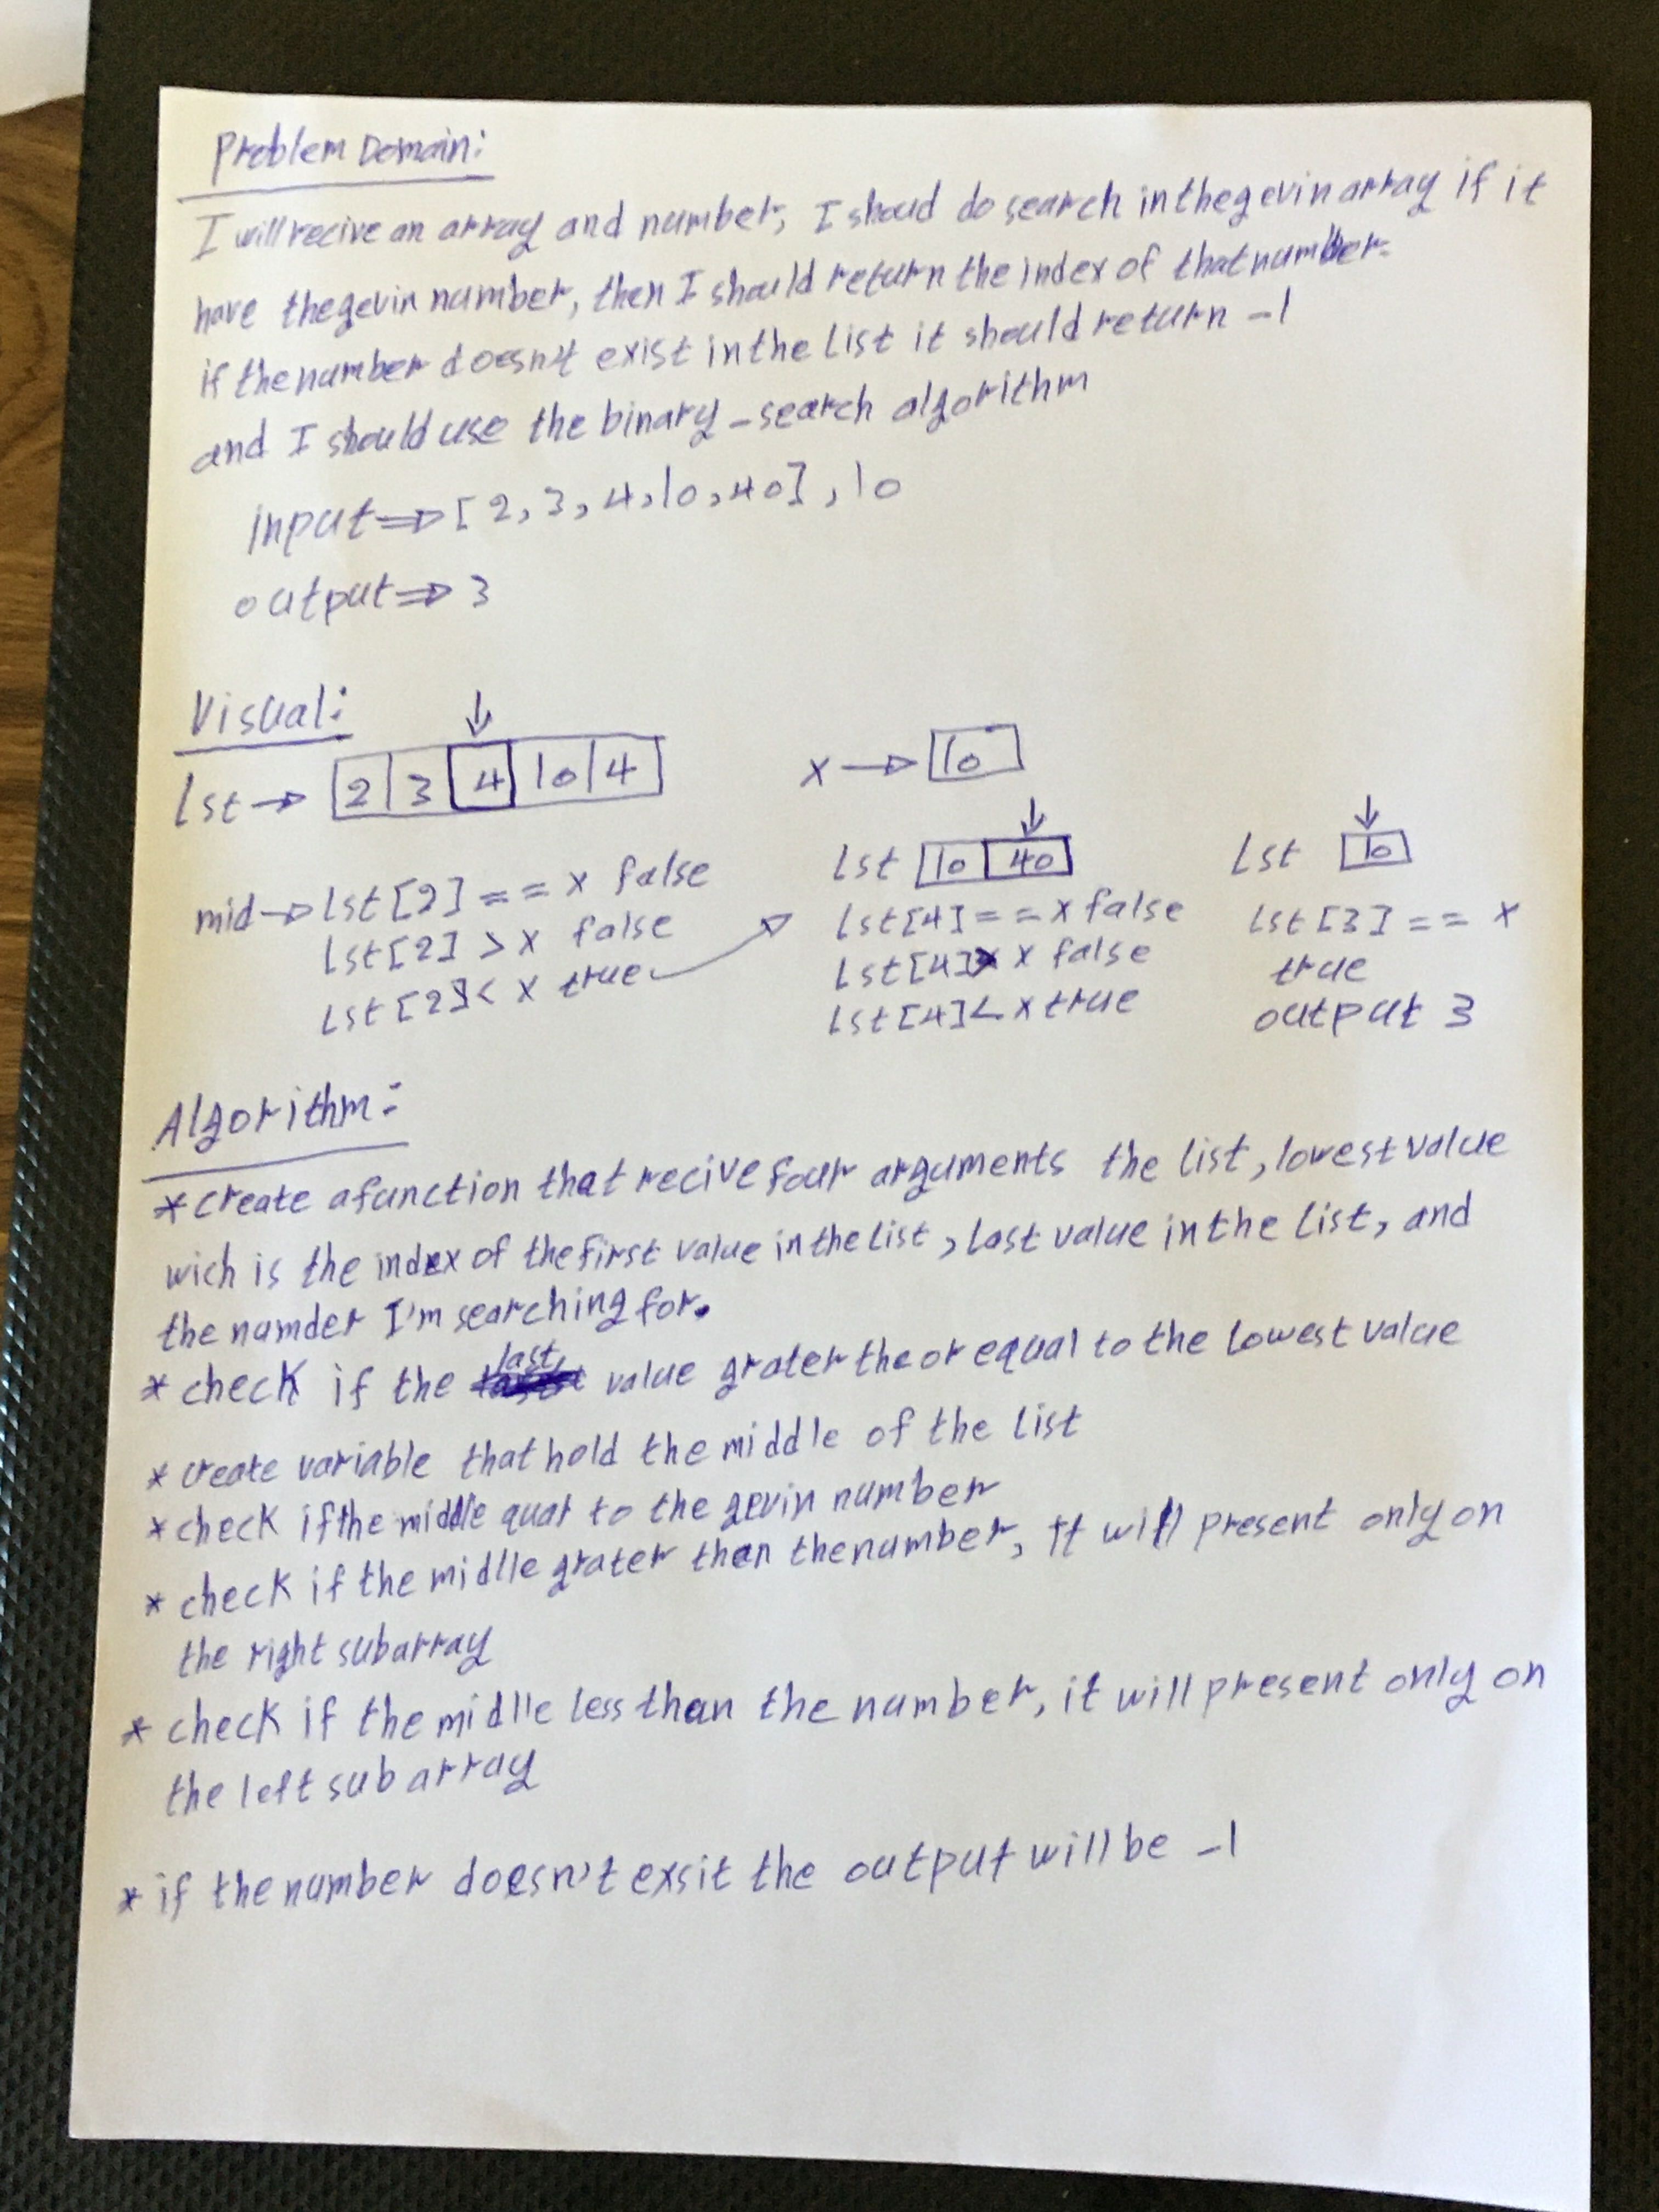 Problem Domain:
I will recive an array and number, I shoud do search in the gevin array if it
have the gevin number, then I should return the index of that number.
if the number doesn't exist in the list it should return -1
and I should use the binary-search algorithm
input ⇒ [2, 3, 4, 10, 40], 10
output ⇒ 3
Visual:
↓
lst → 2 3 4 10 4
x → 10
mid → lst[2] == x false
lst[2] > x false
lst[2] < x true
↓
lst 10 40
lst[4] == x false
lst[4] > x false
lst[4] < x true
↓
lst 10
lst[3] == x
true
output 3
Algorithm:
* create a function that recive four arguments the list, lowest value
wich is the index of the first value in the list, last value in the list, and
the numder I'm searching for.
* check if the last value grater the or equal to the lowest value
* create variable that hold the middle of the list
* check if the middle qual to the gevin number
* check if the midlle grater than the number, it will present only on
the right subarray
* check if the midlle less than the number, it will present only on
the left subarray
* if the number doesn't exsit the output will be -1